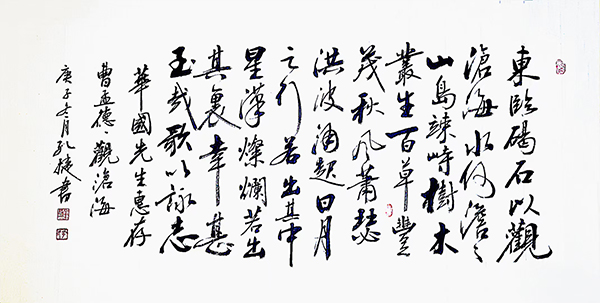 東臨碣石以觀
滄海水何澹〻
山島竦峙樹木
叢生百草豐
茂秋風蕭瑟
洪波涌起日月
之行若出其中
星漢燦爛若出
其裏幸甚
至哉歌以詠志
華國先生惠存
曹孟德觀滄海
庚子冬月孔書